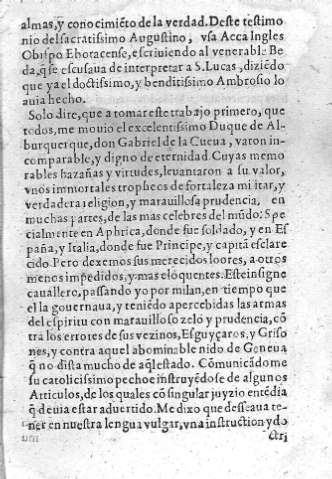 almas, y conocimiẽto de la verdad. Deste testimo
nio del sacratissimo Augustino, vsa Acca Ingles
Obispo Eboracense, escriuiendo al venerable Be
da, q̃ se escusaua de interpretar a S. Lucas, diziẽdo
que ya el doctissimo, y benditissimo Ambrosio lo
auia hecho.
Solo dire, que a tomar este trabajo primero, que
todos, me mouio el excelentissimo Duque de Al-
burquerque, don Gabriel de la Cueua, varon in-
comparable, y digno de eternidad. Cuyas memo
rables hazañas y virtudes, leuantaron a su valor,
vnos immortales tropheos de fortaleza militar, y
verdadera religion, y marauillosa prudencia, en
muchas partes, de las mas celebres del mũdo: Spe
cialmente en Aphrica, donde fue soldado, y en Es
paña, y Italia, donde fue Principe, y capitã esclare
cido. Pero dexemos sus merecidos loores, a otros
menos impedidos, y mas eloquentes. Este insigne
cauallero, passando yo por milan, en tiempo que
el la gouernaua, y teniẽdo apercebidas las armas
del espiritu con marauilloso zelo y prudencia, cõ
tra los errores de sus vezinos, Esguyçaros, y Griso
nes, y contra aquel abominable nido de Geneua
q̃ no dista mucho de aq̃l estado. Comunicãdome
su catolicissimo pecho e instruyẽdose de algunos
Articulos, de los quales cõ singular juyzio entẽdia
q̃ deuia estar aduertido. Me dixo que desseaua te-
ner en nuestra lengua vulgar, vna instruction y do
ctri